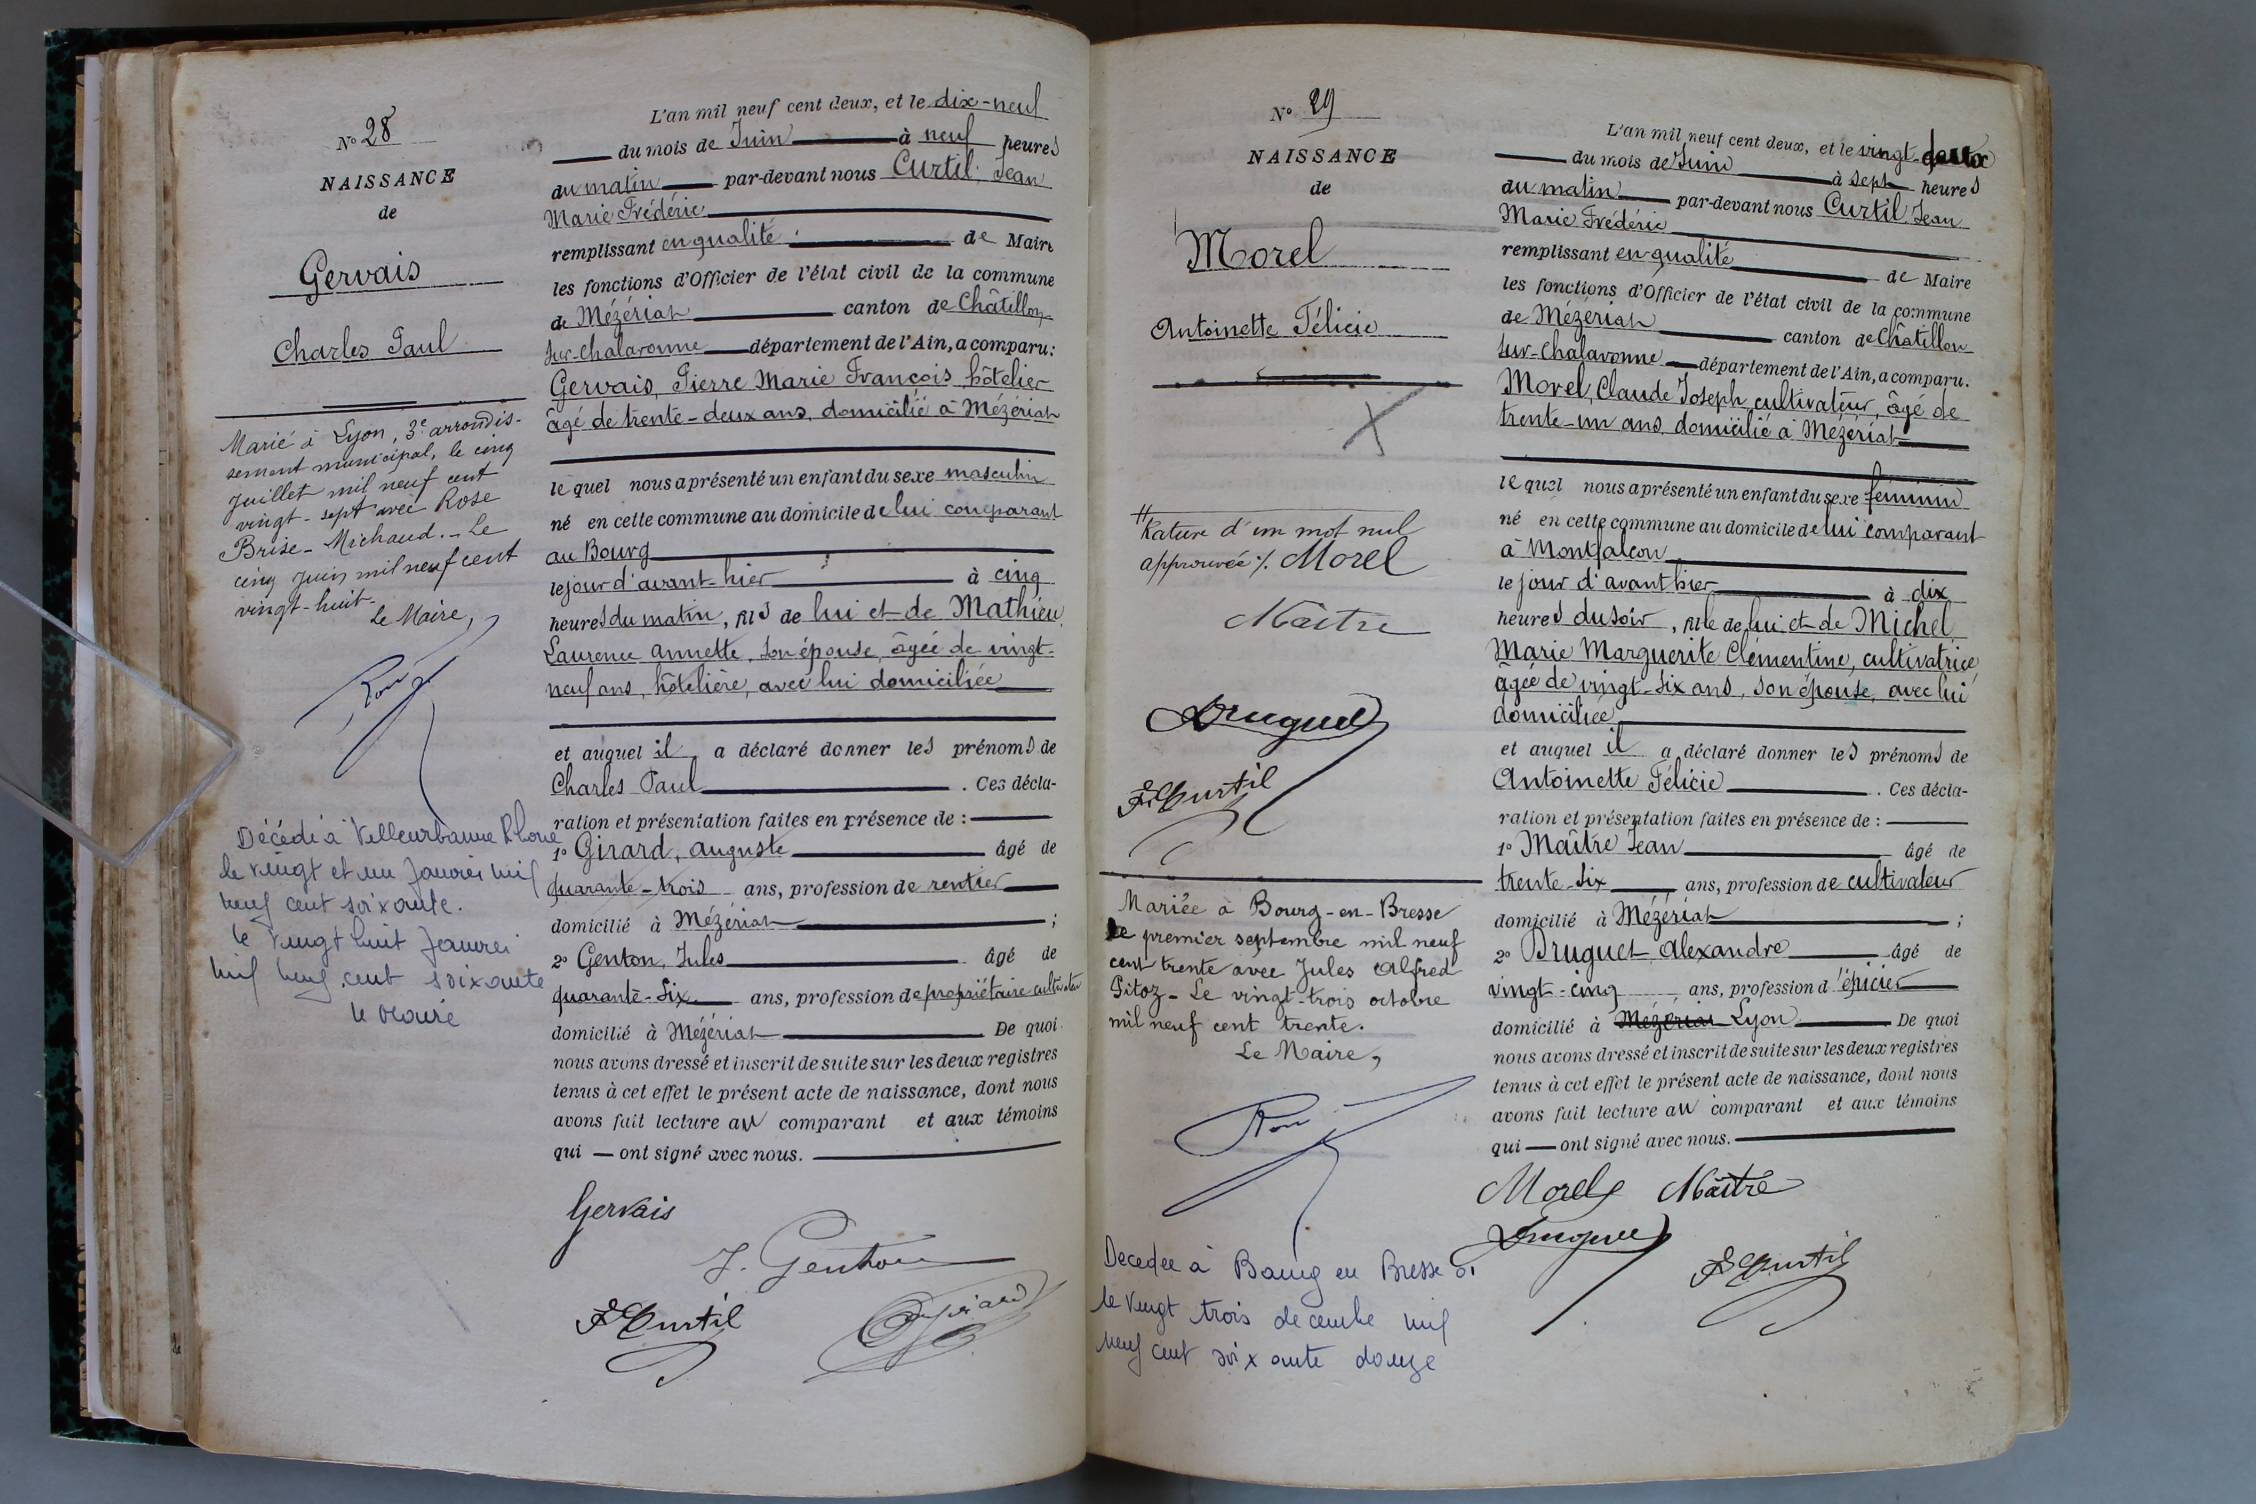 N° 28
NAISSANCE
de
Gervais
Charles Paul
Marié à Lyon, 3e arrondis-
sement municipal, le cinq
juillet mil neuf cent
vingt-sept avec Rose
Brise-Michaud.- Le
cinq juin mil neuf cent
vingt-huit.
Le Maire,
Décédé à Villeurbanne Rhone
le vingt et un Janvier mil
neuf cent soixante.
le vingt huit Janvier
mil neuf cent soixante
le Maire
L'an mil neuf cent deux, et le dix-neuf
du mois de Juin à neuf heures
du matin par-devant nous Curtil Jean
Marie Frédéric
remplissant en qualité de Maire
les fonctions d'Officier de l'état civil de la commune
de Mézériat canton de Châtillon-
sur-Chalaronne département de l'Ain, a comparu:
Gervais, Pierre Marie François hôtelier
âgé de trente-deux ans, domicilié à Mézériat
le quel nous a présenté un enfant du sexe masculin
né en cette commune au domicile de lui comparant
au Bourg
le jour d'avant-hier à cinq
heures du matin, fils de lui et de Mathieu
Laurence Annette, son épouse, âgée de vingt-
neuf ans, hôtelière, avec lui domiciliée
et auquel il a déclaré donner les prénoms de
Charles Paul . Ces décla-
ration et présentation faites en présence de :
1° Girard, Auguste âgé de
quarante-trois ans, profession de rentier
domicilié à Mézériat ;
2° Genton, Jules âgé de
quarante-six ans, profession de propriétaire cultivateur
domicilié à Mézériat De quoi
nous avons dressé et inscrit de suite sur les deux registres
tenus à cet effet le présent acte de naissance, dont nous
avons fait lecture au comparant et aux témoins
qui — ont signé avec nous.
Gervais
J. Genton
F Curtil
N° 29
NAISSANCE
de
Morel
Antoinette Félicie
X
Rature d'un mot nul
approuvée ./. Morel
Maître
Druguet
F Curtil
Mariée à Bourg-en-Bresse
le premier septembre mil neuf
cent trente avec Jules Alfred
Pitoz - Le vingt-trois octobre
mil neuf cent trente.
Le Maire,
Decedee à Bourg en Bresse 01
le vingt trois decembre mil
neuf cent soixante douze
L'an mil neuf cent deux, et le vingt-deux
du mois de Juin à sept heures
du matin par-devant nous Curtil Jean
Marie Frédéric
remplissant en qualité de Maire
les fonctions d'Officier de l'état civil de la commune
de Mézériat canton de Châtillon
sur-Chalaronne département de l'Ain, a comparu.
Morel, Claude Joseph, cultivateur, âgé de
trente-un ans, domicilié à Mézériat
le quel nous a présenté un enfant du sexe féminin
né en cette commune au domicile de lui comparant
à Montfalcon
le jour d'avant hier à dix
heures du soir, fille de lui et de Michel
Marie Marguerite Clémentine, cultivatrice
âgée de vingt-six ans, son épouse, avec lui
domiciliée
et auquel il a déclaré donner les prénoms de
Antoinette Félicie . Ces décla-
ration et présentation faites en présence de :
1° Maître Jean âgé de
trente-six ans, profession de cultivateur
domicilié à Mézériat ;
2° Druguet Alexandre âgé de
vingt-cinq ans, profession d'épicier
domicilié à Mézériat Lyon De quoi
nous avons dressé et inscrit de suite sur les deux registres
tenus à cet effet le présent acte de naissance, dont nous
avons fait lecture au comparant et aux témoins
qui — ont signé avec nous.
Morel Maître
Druguet
F Curtil